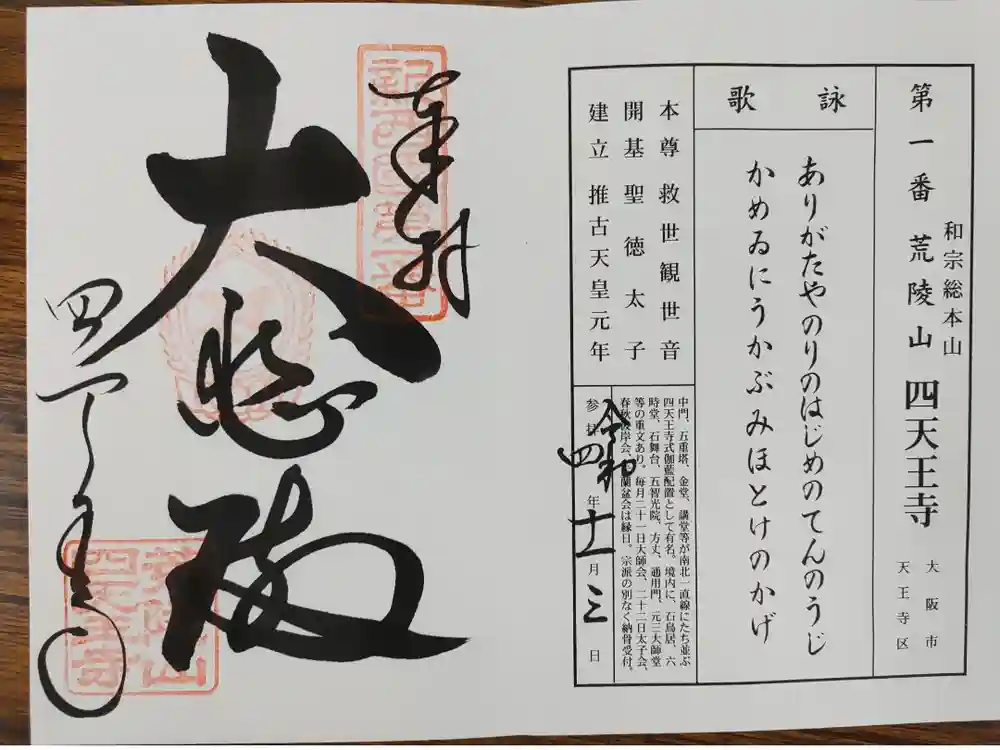 和宗総本山
第一番 荒陵山 四天王寺
大阪市
天王寺区
詠歌
ありがたやのりのはじめのてんのうじ
かめゐにうかぶみほとけのかげ
本尊 救世観世音
開基 聖徳太子
建立 推古天皇元年
中門、五重塔、金堂、講堂等が南北一直線にたち並ぶ
四天王寺式伽藍配置として有名。境内に、石鳥居、六
時堂、石舞台、五智光院、方丈、通用門、元三大師堂
等の重文あり。毎月二十一日大師会、二十二日太子会、
春秋彼岸会、蘭盆会は縁日。宗派の別なく納骨受付。
参拝 令和四年十一月三日
奉拝
大悲殿
四天王寺
荒陵山
四天王寺